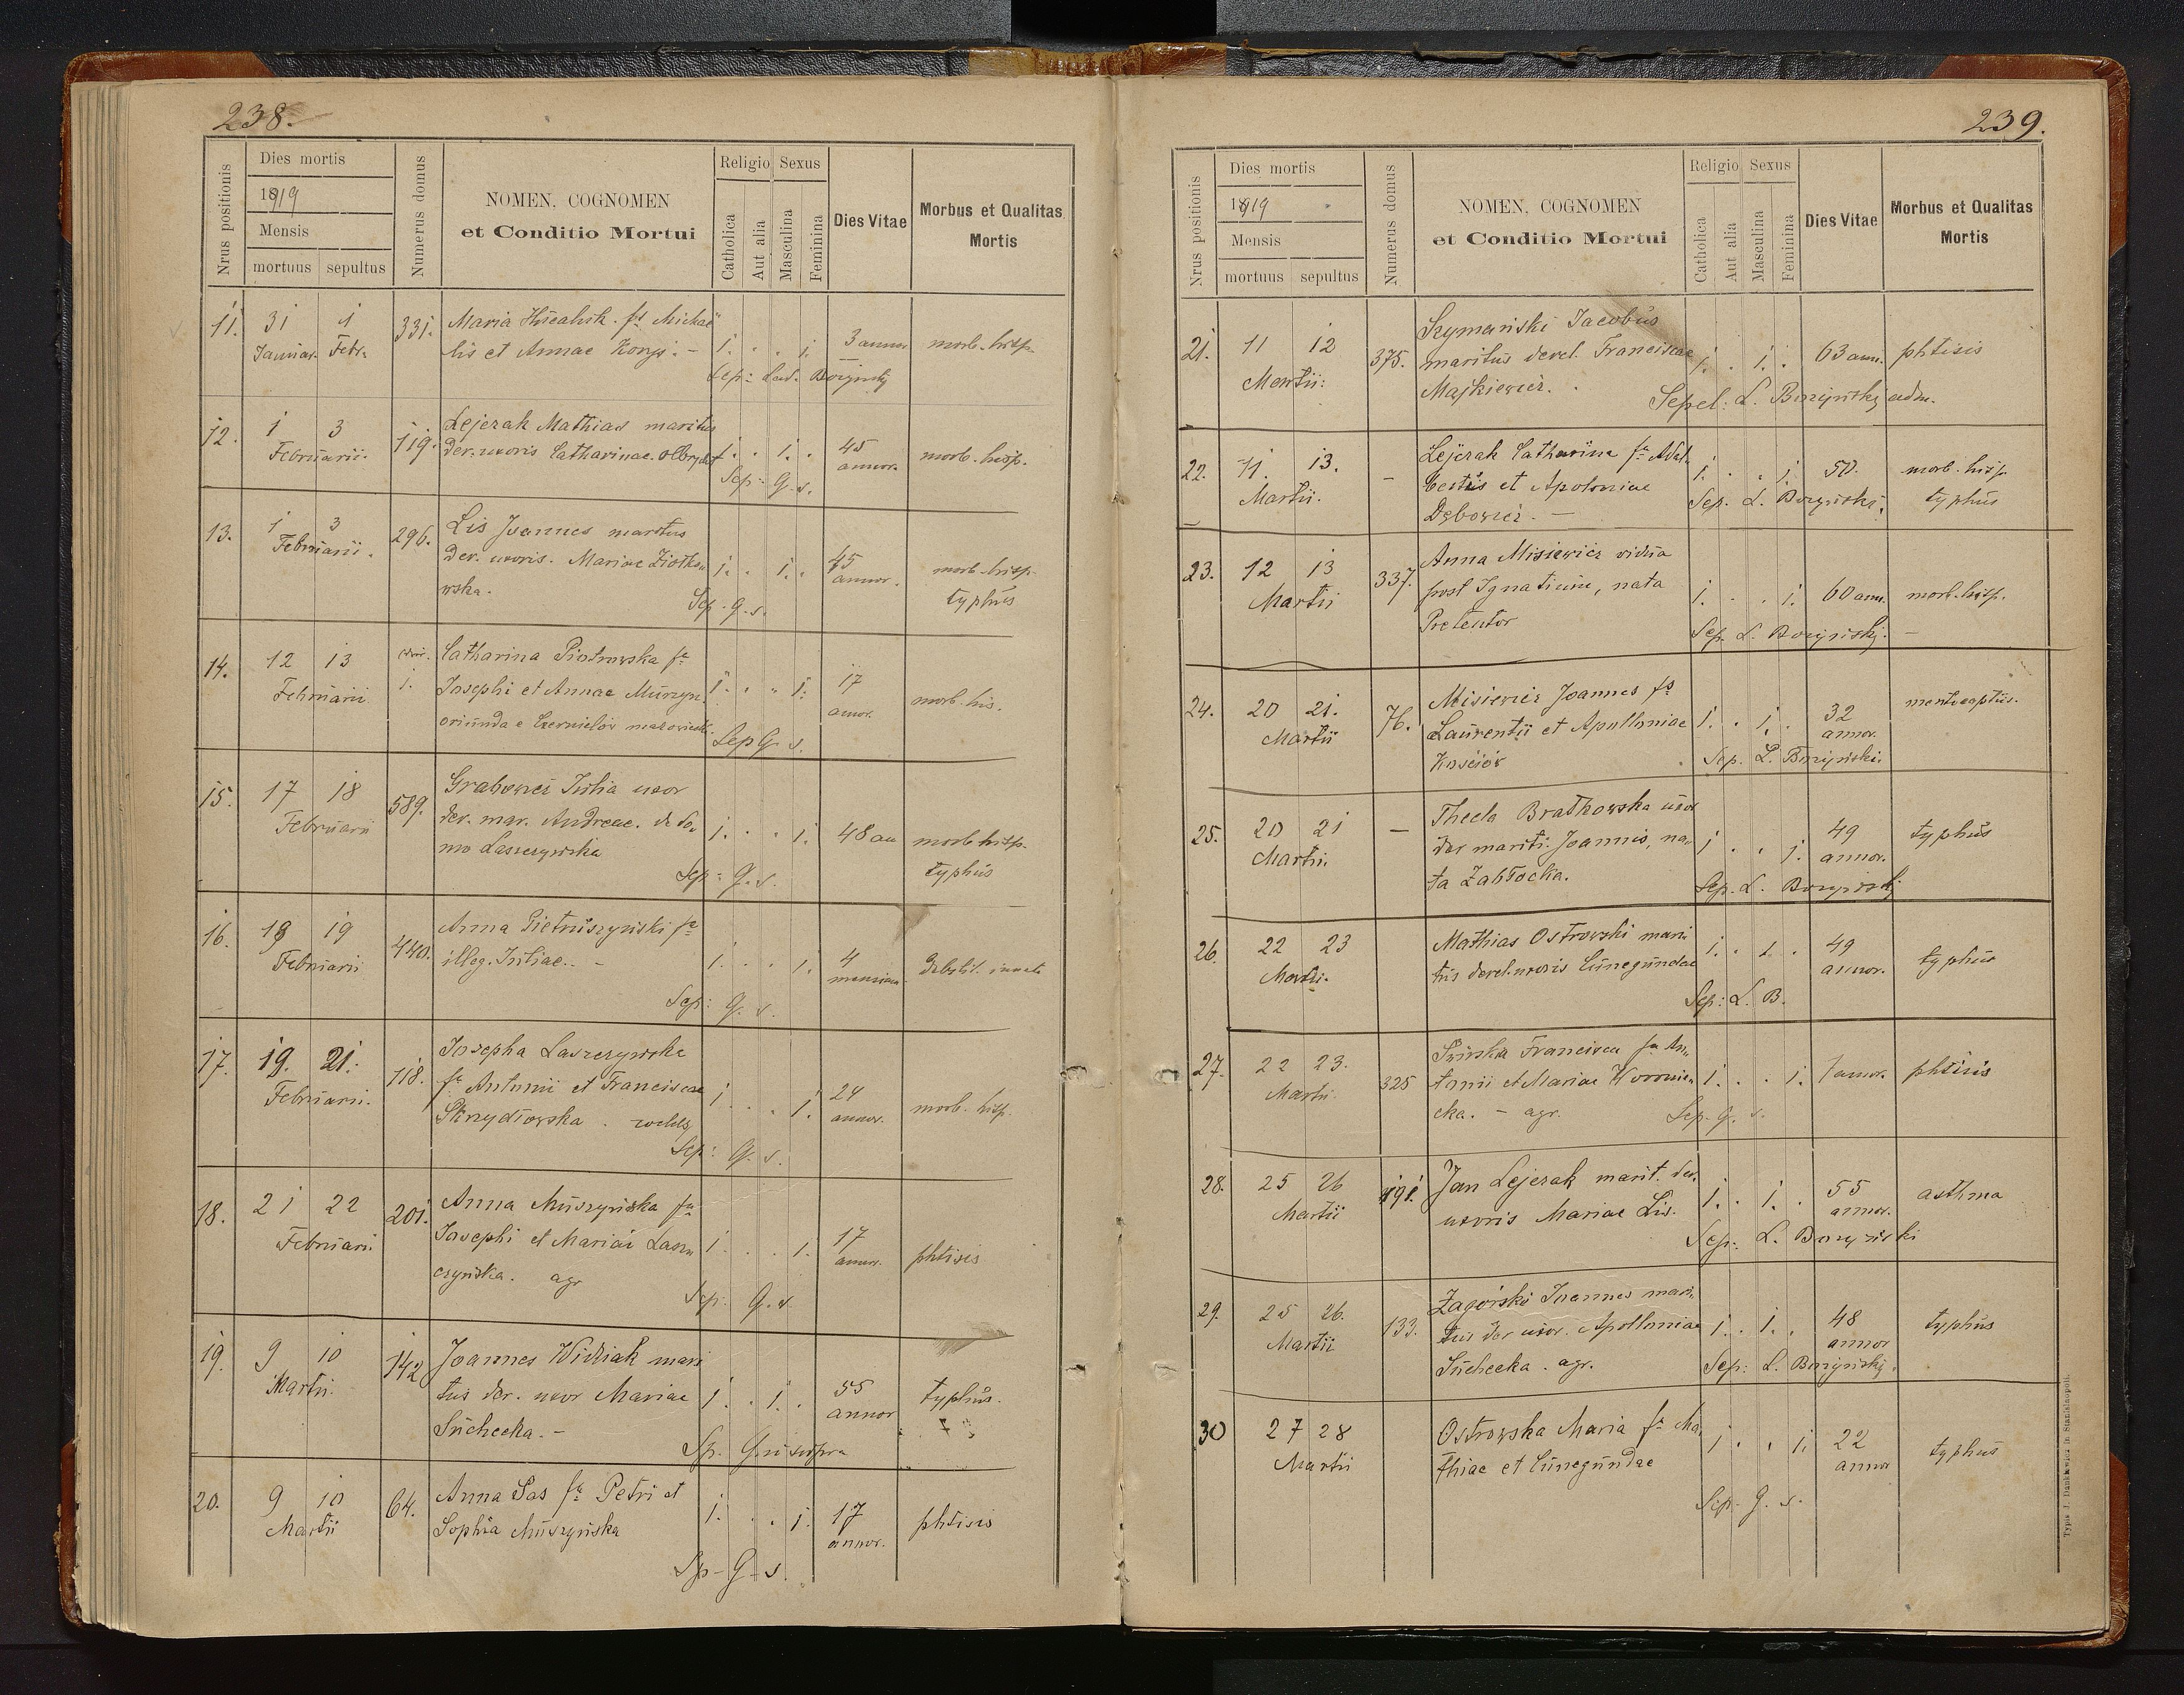 238.
Nrus positionis
Dies mortis
1919
Mensis
mortuus sepultus
Numerus domus
NOMEN, COGNOMEN
et Conditio Mortui
Religio
Catholica
Aut alia
Sexus
Masculina
Feminina
Dies Vitae
Morbus et Qualitas
Mortis
11. 31 1 331. Maria fa Michae
Januar. Febr. lis et Annae 1. . . 1. 3 annor. morb. hisp.
Sep: Lad. Borzynski
12. 1 3 119. Lejezak Mathias maritus
Februarii. der. uxoris Catharinae Olbrycht 1. . 1. . 45 annor. morb. hisp.
Sep: G. s.
13. 1 3 296. Lis Joannes maritus
Februarii. der. uxoris. Mariae Ziółko„ 1. . 1. . 45 annor. morb. hisp.
wska. typhus
Sep. G. s.
14. 12 13 1. Catharina Piotrowska fa
Februarii Josephi et Annae Muszyn. 1. . . 1. 17 annor. morb. his.
oriunda e
Sep G. s.
15. 17 18 589. Grabowicz Julia uxor
Februarii der. mar. Andreae. de do„ 1. . . 1. 48 an morb hisp.
mo Laszczyńska typhus
Sep: G. s.
16. 18 19 440. Anna Pietruszyński fa
Februarii illeg. Juliae. – 1. . . 1. 4 mensium debilit. innata
Sep: G. s.
17. 19. 21. 118. Josepha Laszczyńska
Februarii. fa Antonii et Franciscae 1. . . 1. 24 annor. morb. hisp.
Skrzydłowska.
Sep: G. s.
18. 21 22 201. Anna Muszyńska fa
Februarii Josephi et Mariae Lasz„ 1. . . 1. 17 annor. phtisis
czyńska. agr
Sep. G. s.
19. 9 10 142 Joannes Widziak mari
Martii. tus der. uxor Mariae 1. . 1. . 55 annor typhus.
Suchecka. –
Sep. G. ut supra
20. 9 10 64. Anna Sas fa Petri et
Martii Sophia Muszyńska 1. . . 1. 17 annor. phtisis
Sep - G - s.
239.
Nrus positionis
Dies mortis
1919
Mensis
mortuus sepultus
Numerus domus
NOMEN, COGNOMEN
et Conditio Mortui
Religio
Catholica
Aut alia
Sexus
Masculina
Feminina
Dies Vitae
Morbus et Qualitas
Mortis
Szymański Jacobus
21. 11 12 375. maritus derel. Franciscae 1. . 1. . 63 ann. phtisis
Martii. Majkiewicz.
Sepel: L. Borzyński adm.
22. 11. 13. – Lejezak Catharina fa Adal„ 1. . . 1. 50. morb. hisp.
Martii. bertus et Apoloniae typhus
Dębowicz. – Sep. L. Borzyński.
23. 12 13 337. Anna Misiewicz vidua
Martii post Ignatium, nata 1. . . 1. 60 ann. morb. hisp.
Pretentor Sep. L. Borzyński. –
24. 20 21. 76. Misiewicz Joannes fs
Martii Laurentii et Apolloniae 1. . 1. . 32 annor. mentecaptus.
Kościów Sep. L. Borzyński.
25. 20 21 – Thecla Bratkowska uxor
Martii. der mariti. Joannis, na„ 1 . . 1. 49 annor. typhus
ta Zabłocka. Sep. L. Borzyński
26. 22 23 Mathias Ostrowski mari
Martii. tus derel. uxoris Cunegundae 1. . 1. . 49 annor. typhus
Sep: L. B.
27. 22 23. 325 Francisca fa An„
Martii. tonii et Mariae 1. . . 1. 1 annor. phtisis
cka. – agr. Sep. G. s.
28. 25 26 191. Jan Lejezak marit. der.
Martii uxoris Mariae Lis. 1. . 1. . 55 annor. asthma
Sep: L. Borzyński
29. 25 26. 133. Zagórski Joannes mari„
Martii tus der uxor. Apolloniae 1. . 1. . 48 annor typhus
Suchecka. agr. Sep: L. Borzyński.
30 27 28 Ostrowska Maria fa Ma„
Martii thiae et Cunegundae 1. . . 1. 22 annor typhus
Sep. G. s.
Typis J. Dankiewicz in Stanislaopoli.